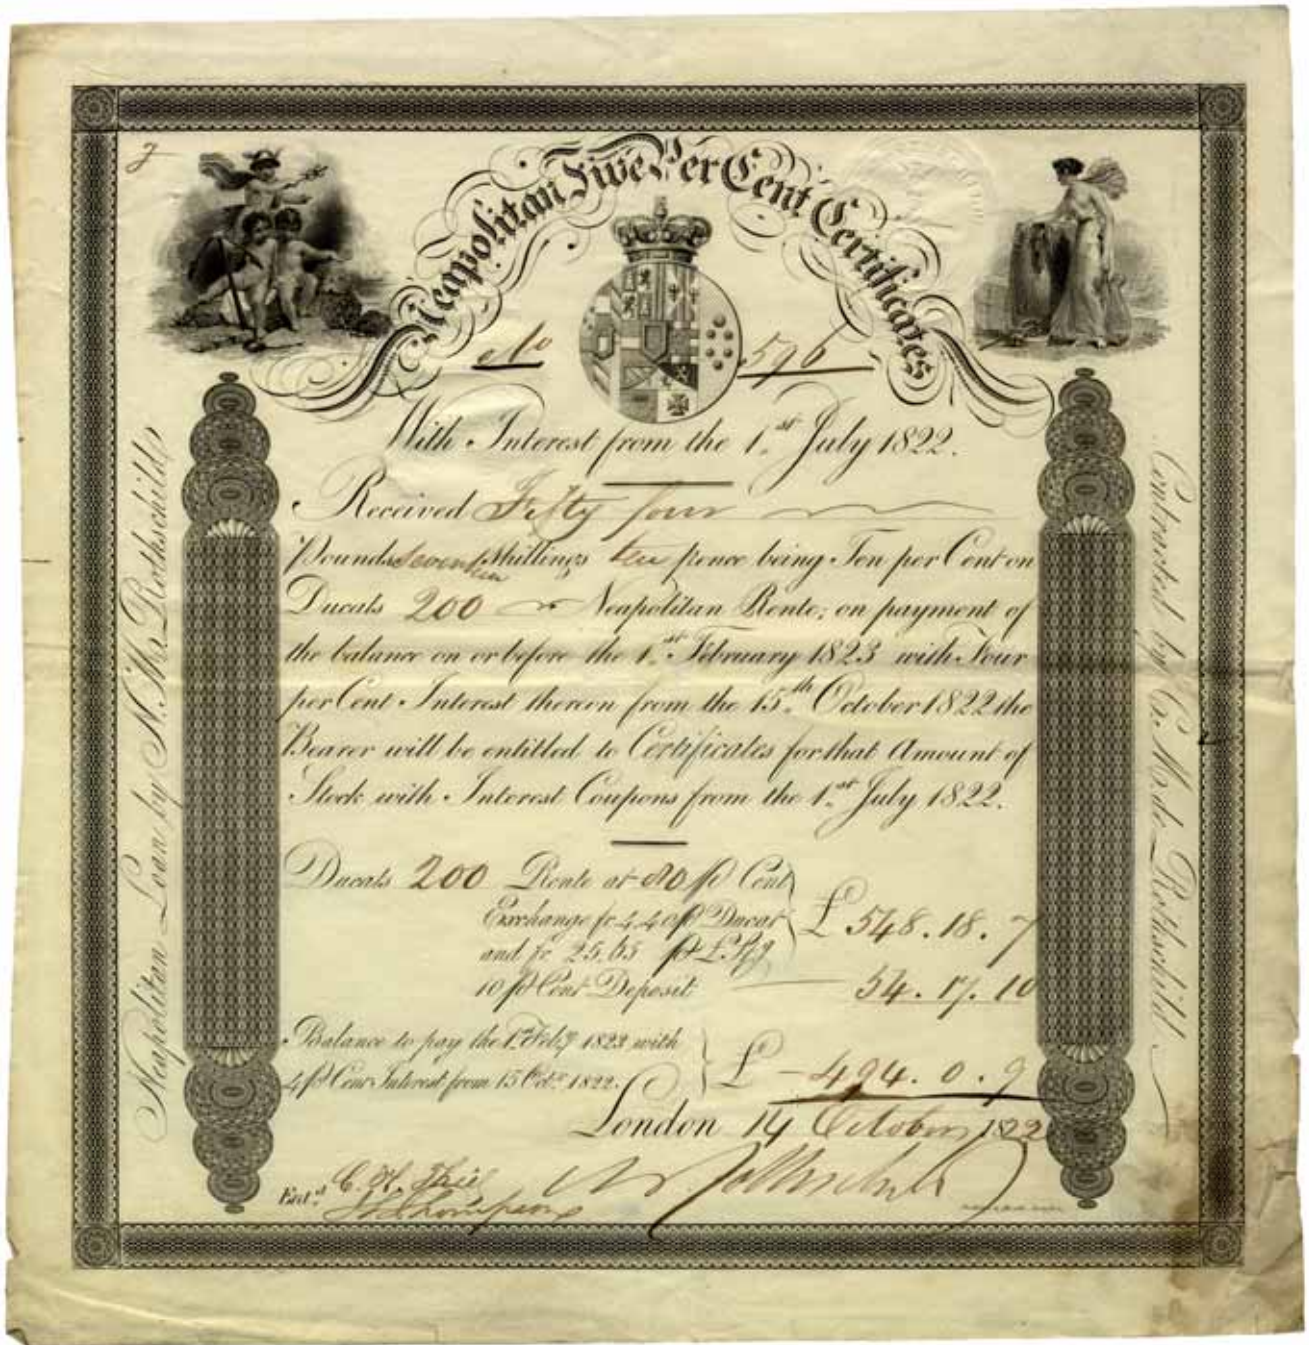 Neapolitan Five Per Cent Certificates
No 596
With Interest from the 1st July 1822.
Received Fifty four
Pounds Seventeen Shillings ten pence being Ten per Cent on
Ducats 200 Neapolitan Rente; on payment of
the balance on or before the 1st February 1823 with Four
per Cent Interest thereon from the 15th October 1822 the
Bearer will be entitled to Certificates for that Amount of
Stock with Interest Coupons from the 1st July 1822.
Ducats 200 Rente at 80 p Cent
Exchange fr 4.40 p Ducat
and fr 25.65 p £ Stg
£ 548.18.7
10 p Cent Deposit 54.17.10
Balance to pay the 1st Feby 1823 with
4 p Cent Interest from 15 Octr 1822.
£ 494.0.9
London 14 October 1822
Entd
Thompson
Neapolitan Loan by N. M. Rothschild,
Contracted by C. M. de Rothschild